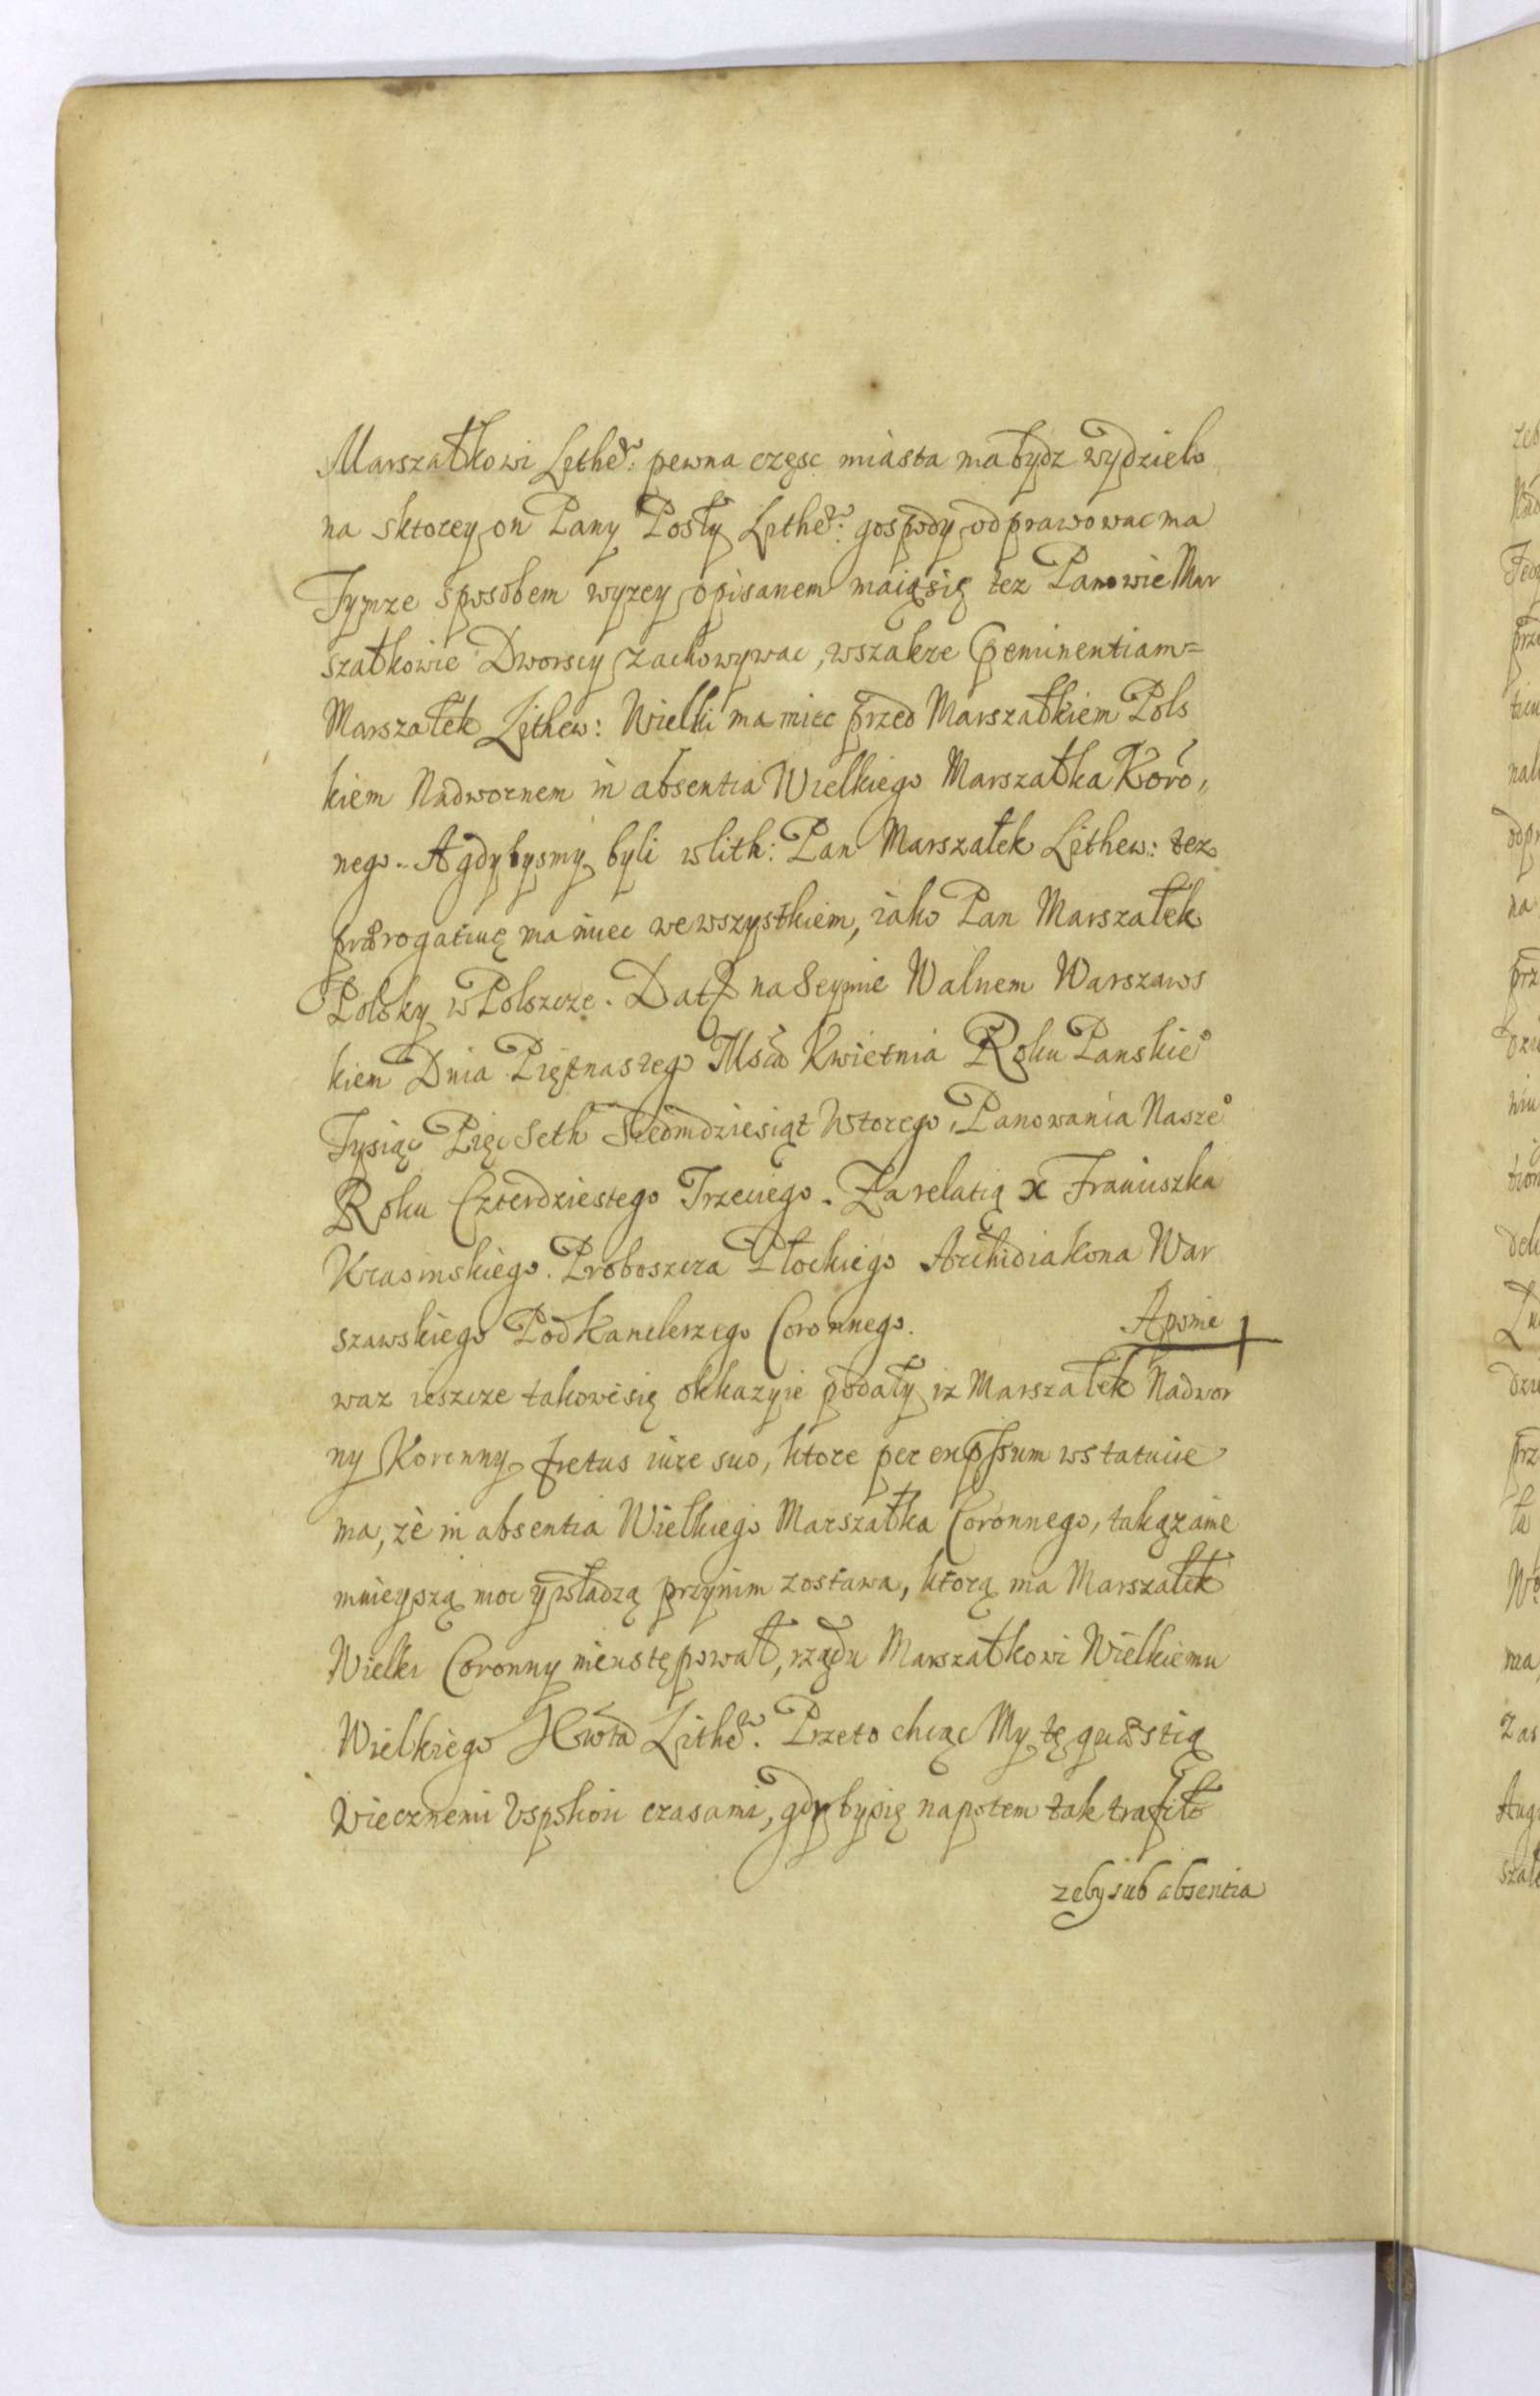 Marszałkowi Lethew: pewna częsc miasta ma bydz wydzielo
na sktorey on Pany Posły Lethew: gospody odprawowac ma
Tymze sposobem wyzey opisanem maią się tez Panowie Mar
szałkowie Dworscy zachowywac, wszakze Peminentiam=
Marszałek Lithew: Wielki ma miec przed Marszałkiem Pols
kiem Nadwornem in absentia Wielkiego Marszałka Koro,
nego. A gdybysmy byli wlith: Pan Marszałek Lithew: tez
prærogatiuę ma miec we wszystkiem, iako Pan Marszałek
Polsky w Polszcze. Dat na Seymie Walnem Warszaws
kiem Dnia Piętnastego Msca Kwietnia Roku Panskieo
Tysiąc Pięc Seth Siedmdziesiąt Wtorego, Panowania Naszeo
Roku Czterdziestego Trzeciego. Za relatią x Franiszka
Krasinskiego. Proboszcza Płockiego Archidiakona War
szawskiego Podkanclerzego Coronnego. Aponie
waz ieszcze takowe się okkazyie podały iz Marszałek Nadwor
ny Koronny fretus iure suo, ktore per expssum wstatucie
ma, ze in absentia Wielkiego Marszałka Coronnego, takązanie
mnieyszą moc y władzą przynim zostawa, ktorą ma Marszałek
Wielki Coronny nieustępował, rządu Marszałkowi Wielkiemu
Wielkiego Xwta Lithew. Przeto chcąc My tę quæstią
wiecznemi Uspokoic czasami, gdyby się napotem tak trafiło
zeby sub absentia